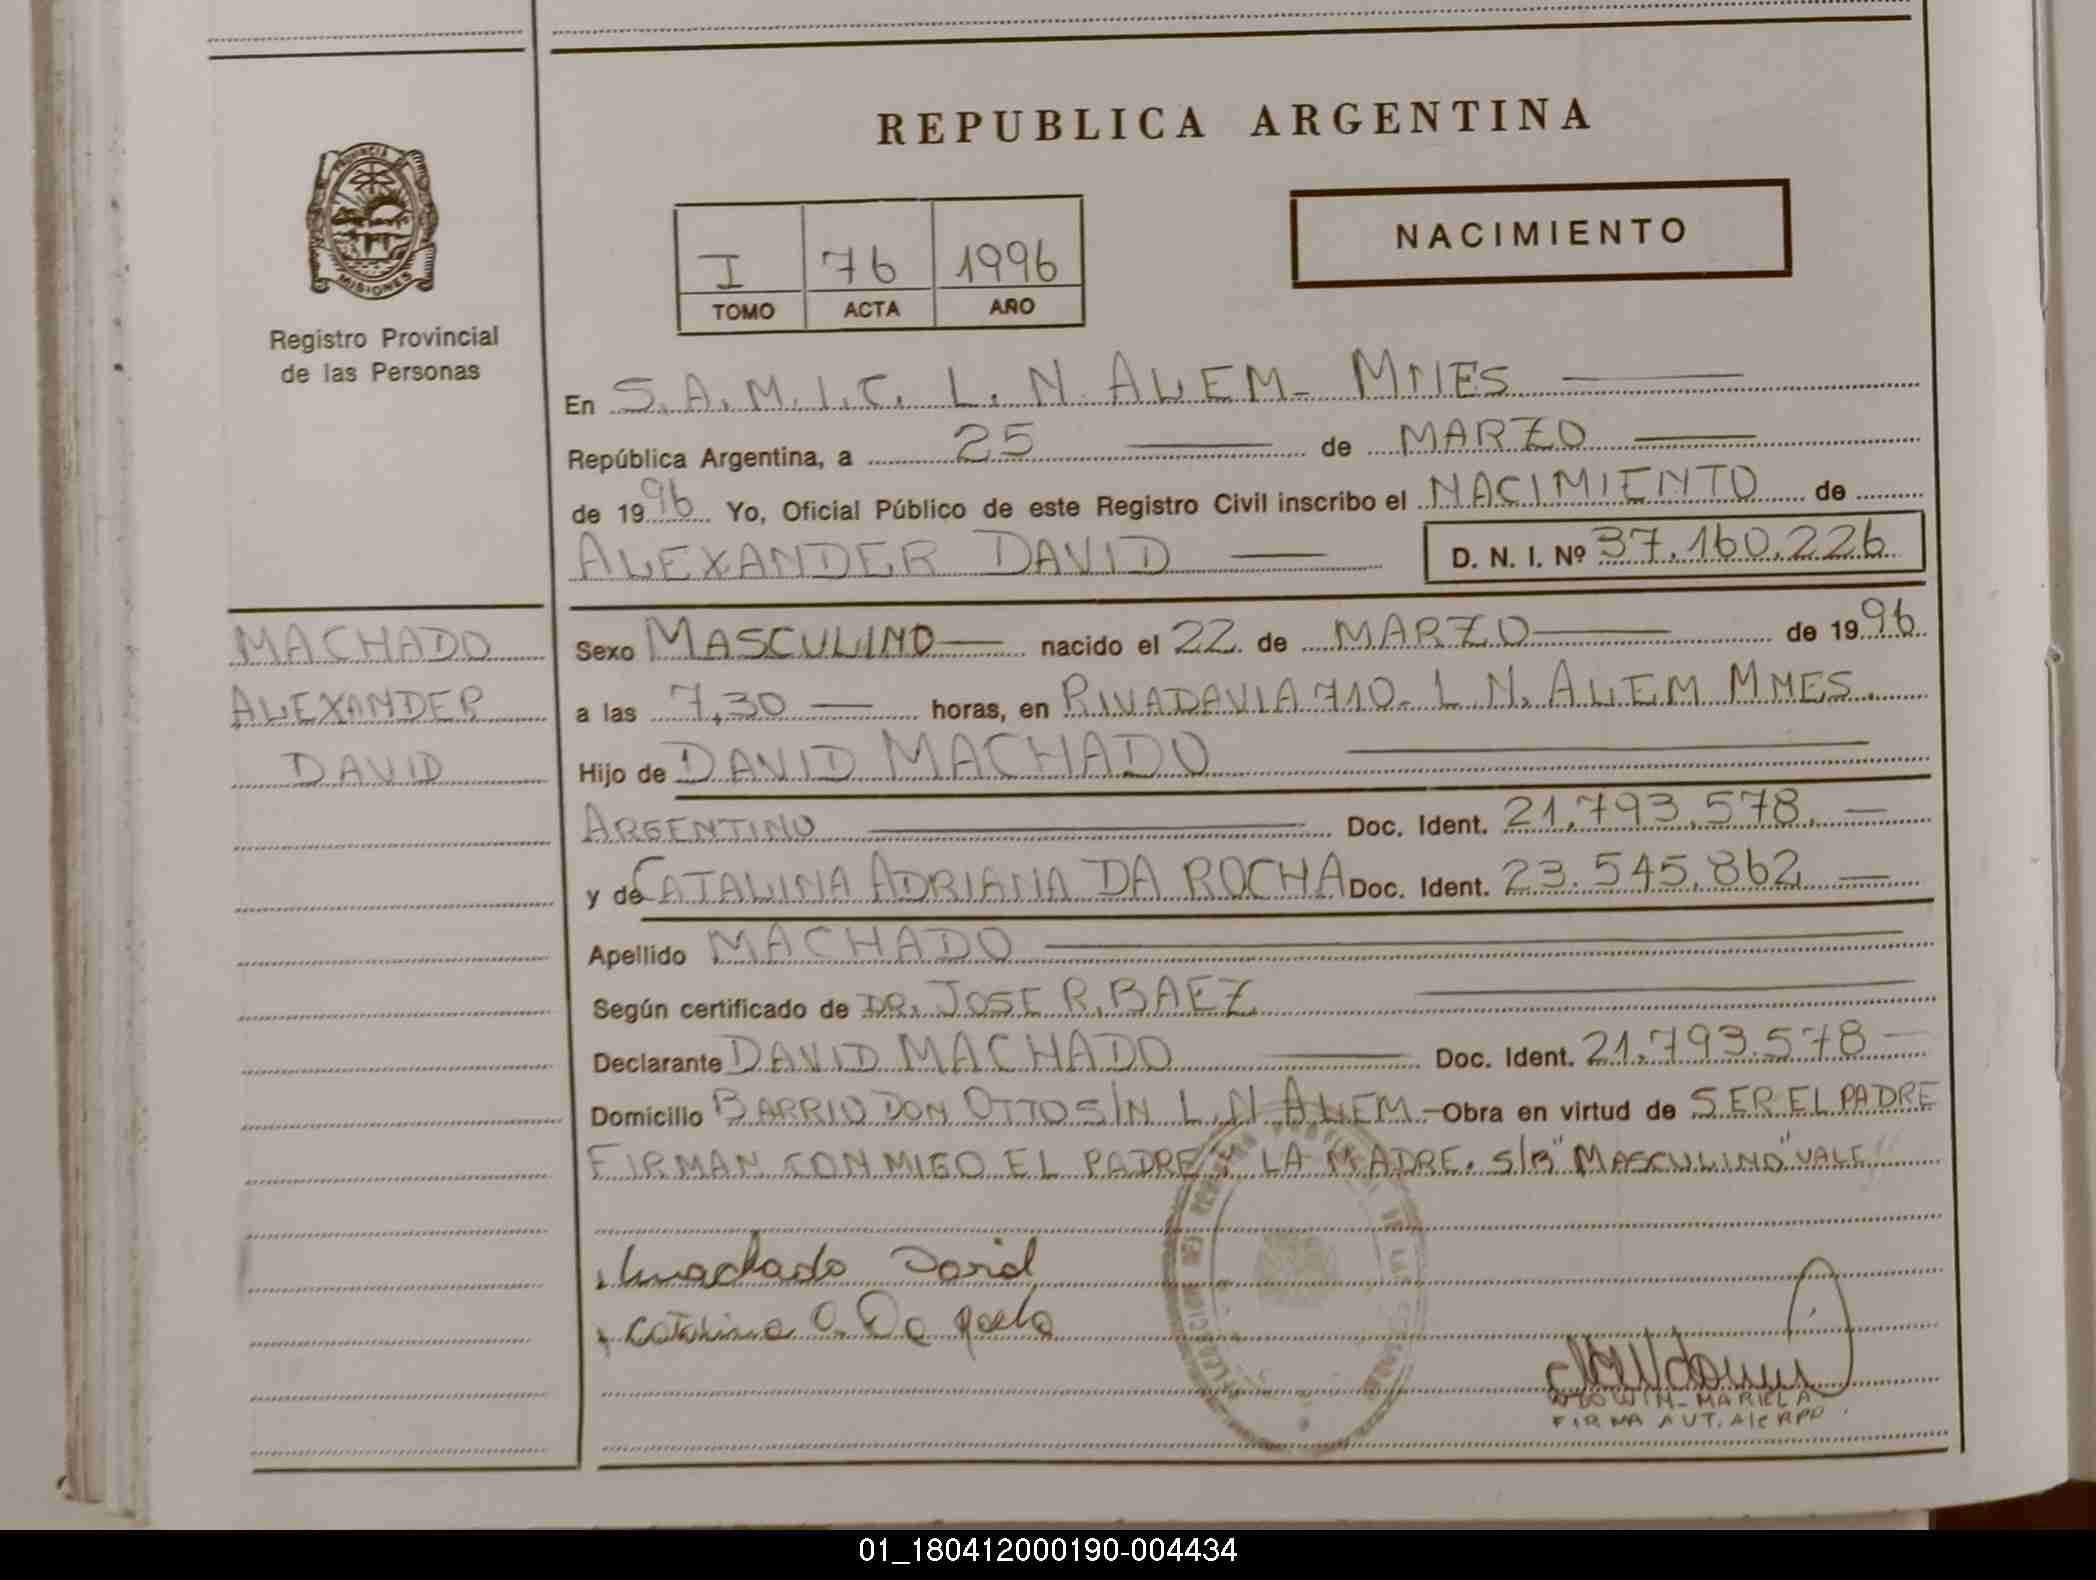 REPUBLICA ARGENTINA
PROVINCIA
MISIONES
Registro Provincial
de las Personas
NACIMIENTO
I 76 1996
TOMO ACTA AÑO
En S.A.M.I.C. L. N. ALEM - MNES
República Argentina, a 25 de MARZO
de 1996 Yo, Oficial Público de este Registro Civil inscribo el NACIMIENTO de
ALEXANDER DAVID D. N. I. Nº 37.160.226
MACHADO
ALEXANDER
DAVID
Sexo MASCULINO nacido el 22 de MARZO de 1996
a las 7,30 horas, en RIVADAVIA 710- L N. ALEM MNES.
Hijo de DAVID MACHADO
ARGENTINO Doc. Ident. 21.793.578.
y de CATALINA ADRIANA DA ROCHA Doc. Ident. 23.545.862
Apellido MACHADO
Según certificado de DR. JOSE R. BAEZ
Declarante DAVID MACHADO Doc. Ident. 21.793.578
Domicilio BARRIO DON OTTO S/N L.N ALEM - Obra en virtud de SER EL PADRE
FIRMAN CONMIGO EL PADRE Y LA MADRE. S/R "MASCULINO" VALE
Machado David
Catalina A. Da
MARIELA
FIRMA AUT.
01_180412000190-004434